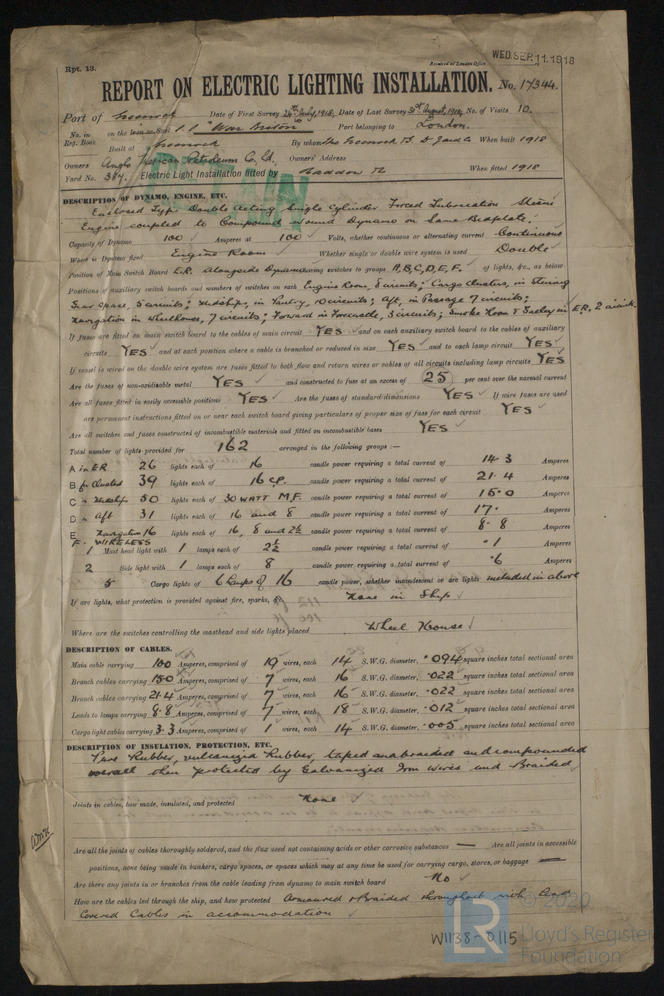 Rpt. 13.
Received at London Office WED. SEP. 11. 1918
REPORT ON ELECTRIC LIGHTING INSTALLATION. No. 17344.
Port of Greenock Date of First Survey 24th July, 1918 Date of Last Survey 3rd August, 1918 No. of Visits 10.
No. in Reg. Book on the Iron or Steel S.S. "War Port belonging to London.
Built at Greenock By whom The Greenock & When built 1918
Owners Anglo Petroleum Co. Ld. Owners' Address
Yard No. 387. Electric Light Installation fitted by Haddow When fitted 1918
DESCRIPTION OF DYNAMO, ENGINE, ETC.
Enclosed Type Double Acting Single Cylinder Forced Lubrication Steam
Engine coupled to Compound wound Dynamo on Same Bedplate.
Capacity of Dynamo 100 Amperes at 100 Volts, whether continuous or alternating current Continuous
Where is Dynamo fixed Engine Room Whether single or double wire system is used Double
Position of Main Switch Board E.R. Alongside Dynamo having switches to groups A, B, C, D, E, F. of lights, &c., as below
Positions of auxiliary switch boards and numbers of switches on each Engine Room, 5 circuits; Cargo Clusters, in Steering
Gear Space, 5 circuits; Midships, in Pantry, 10 circuits; Aft, in Passage 7 circuits;
Navigation in Wheelhouse, 7 circuits; Forward in Forecastle, 3 circuits; Smoke Room & Galley in E.R., 2 circuit.
If fuses are fitted on main switch board to the cables of main circuit YES and on each auxiliary switch board to the cables of auxiliary
circuits YES and at each position where a cable is branched or reduced in size YES and to each lamp circuit YES
If vessel is wired on the double wire system are fuses fitted to both flow and return wires or cables of all circuits including lamp circuits YES
Are the fuses of non-oxidizable metal YES and constructed to fuse at an excess of 25 per cent over the normal current
Are all fuses fitted in easily accessible positions YES Are the fuses of standard dimensions YES If wire fuses are used
are permanent instructions fitted on or near each switch board giving particulars of proper size of fuse for each circuit YES
Are all switches and fuses constructed of incombustible materials and fitted on incombustible bases YES
Total number of lights provided for 162 arranged in the following groups :—
A in ER 26 lights each of 16 candle power requiring a total current of 14.3 Amperes
B for Clusters 39 lights each of 16 C.P. candle power requiring a total current of 21.4 Amperes
C Midships 50 lights each of 30 WATT M.F. candle power requiring a total current of 15.0 Amperes
D Aft 31 lights each of 16 and 8 candle power requiring a total current of 17. Amperes
E Navigation 16 lights each of 16, 8 and 2½ candle power requiring a total current of 8.8 Amperes
F. WIRELESS
1 Mast head light with 1 lamps each of 2½ candle power requiring a total current of .1 Amperes
2 Side light with 1 lamps each of 8 candle power requiring a total current of .6 Amperes
5 Cargo lights of 6 Lamps of 16 candle power, whether incandescent or arc lights included in above
If arc lights, what protection is provided against fire, sparks, &c. None in Ship
Where are the switches controlling the masthead and side lights placed Wheel House
DESCRIPTION OF CABLES.
Main cable carrying 100 Amperes, comprised of 19 wires, each 14 S.W.G. diameter, .094 square inches total sectional area
Branch cables carrying 15.0 Amperes, comprised of 7 wires, each 16 S.W.G. diameter, .022 square inches total sectional area
Branch cables carrying 21.4 Amperes, comprised of 7 wires, each 16 S.W.G. diameter, .022 square inches total sectional area
Leads to lamps carrying 8.8 Amperes, comprised of 7 wires, each 18 S.W.G. diameter, .012 square inches total sectional area
Cargo light cables carrying 3.3 Amperes, comprised of 1 wires, each 14 S.W.G. diameter, .005 square inches total sectional area
DESCRIPTION OF INSULATION, PROTECTION, ETC.
Pure Rubber, vulcanized Rubber, taped and braided and compounded
overall then protected by Galvanized Iron wires and Braided
Joints in cables, how made, insulated, and protected None
Are all the joints of cables thoroughly soldered, and the flux used not containing acids or other corrosive substances — Are all joints in accessible
positions, none being made in bunkers, cargo spaces, or spaces which may at any time be used for carrying cargo, stores, or baggage —
Are there any joints in or branches from the cable leading from dynamo to main switch board No
How are the cables led through the ship, and how protected Armoured & Braided throughout with Lead
Covered Cables in accommodation
W1138-0115
LR
© 2020
Lloyd's Register
Foundation